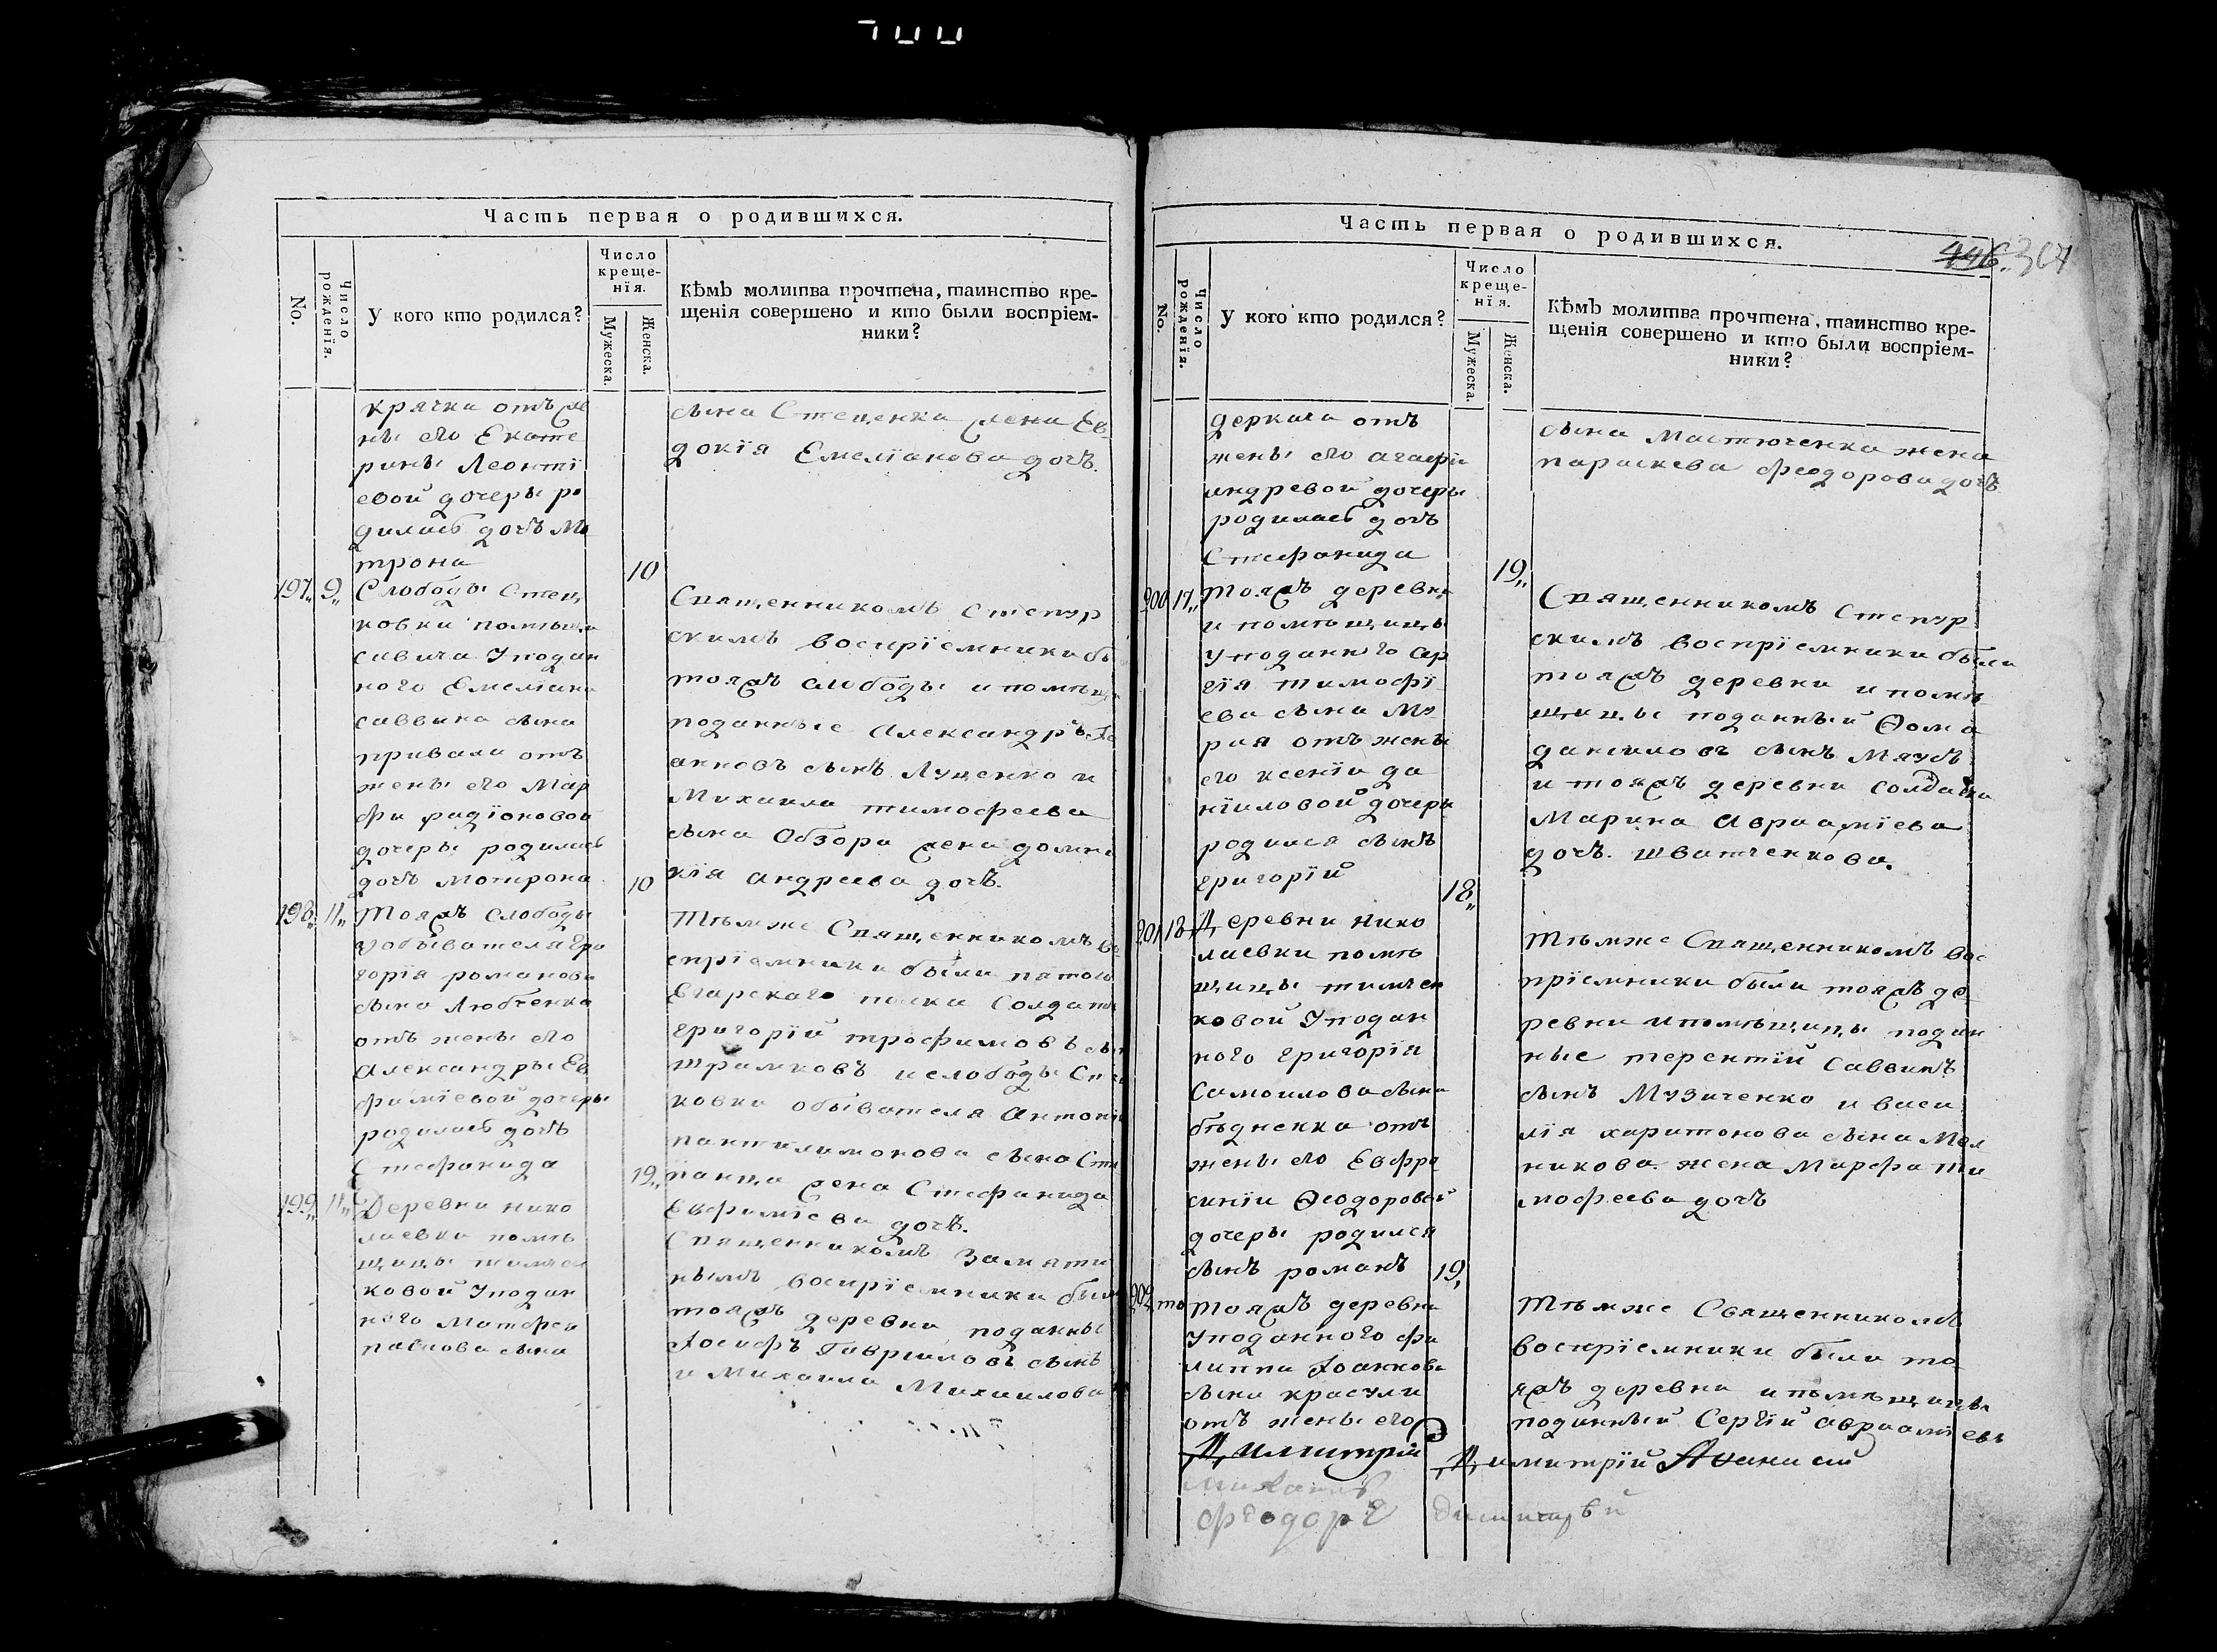 Часть первая о родившихся.
No.
Число рожденїя.
У кого кто родился?
Число
креще-
нїя.
Мужеска.
Женска.
Кѣмъ молитва прочтена, таинство кре-
щенія совершено и кто были воспріем-
ники?
крячка отъ же
ны его Екате
рины Леонтї
евой дочеры ро
дилась дочь Ма
трона
10
сына Стеценка жена Ев
докїя Емелїанова дочь.
197„ 9„
Слободы Стец
ковки помѣщи
савича у подан
ного Емелїана
саввина сына
привали отъ
жены его Мар
фы радїоновой
дочеры родилась
дочь Мотрона
10
Священникомъ Степур
скимъ воспрїемники бы
тояжъ слободы и помѣщи
поданные Александръ Іо
анновъ сынъ Луценко и
Михаила тимофеева
сына Обзора жена домни
кїя андреева дочь.
198„ 11„
Тояжъ слободы
у обывателя гри
горїя романова
сына Любченка
отъ жены его
Александры Ев
фимїевой дочеры
родилась дочь
Стефанида
19„
Тѣмже Священникомъ во
спрїемники были пятого
Егарского полка Солдатъ
григорїй трофимовъ сын
шрамковъ и слободы Сте
ковки обывателя Антона
пантилимонова сына Сте
панца жена Стефанида
Евфимїева дочь.
199„ 11„
Деревни нико
лаевки помѣ
щицы тимчен
ковой у подан
ного Матфея
павлова сына
Священникомъ Замяти
нымъ воспрїемники были
тояжъ деревни поданные
Іосифъ Гавриловъ сынъ
и Михаила Михаилова
Часть первая о родившихся.
446. 364
No.
Число рожденїя.
У кого кто родился?
Число
креще-
нїя.
Мужеска.
Женска.
Кѣмъ молитва прочтена, таинство кре-
щенія совершено и кто были воспріем-
ники?
деркача отъ
жены его агафїи
андревой дочеры
родилась дочь
Стефанида
19„
сына Мастюченка жена
параскева феодорова дочь
200 17„
тояжъ деревни
и помѣщицы
у поданного сер
гїя тимофї
ева сына Мо
рая отъ жены
его ксенїи да
нїиловой дочери
родился сынъ
григорїй
18„
Священникомъ Степур
скимъ воспрїемники были
тояжъ деревни и помѣ
щицы поданный Ѳома
данииловъ сынъ Мязубъ
и тояжъ деревни солдатка
Марина Авраамїева
дочь. шватченкова.
201 18
Деревни нико
лаевки помѣ
щицы тимчен
ковой у подан
ного григорїя
Самоилова сына
бѣдненка отъ
жены его Евфро
синїи Ѳеодоровой
дочеры родился
сынъ романъ
19„
Тѣмже Священникомъ вос
прїемники были тояжъ де
ревни и помѣщицы подан
ные терентїй саввинъ
сынъ Музиченко и васи
лїя харитонова сына Мел
никова жена Марфа ти
мофеева дочь
202 то
Тояжъ деревни
у поданного фи
липпа Іоаннова
сына красули
отъ жены его
Тѣмже Священникомъ
воспрїемники были то
яжъ деревни и помѣщицы
поданный Сергїй авраамїевъ
Димитрїй
Димитрїй
феодоръ